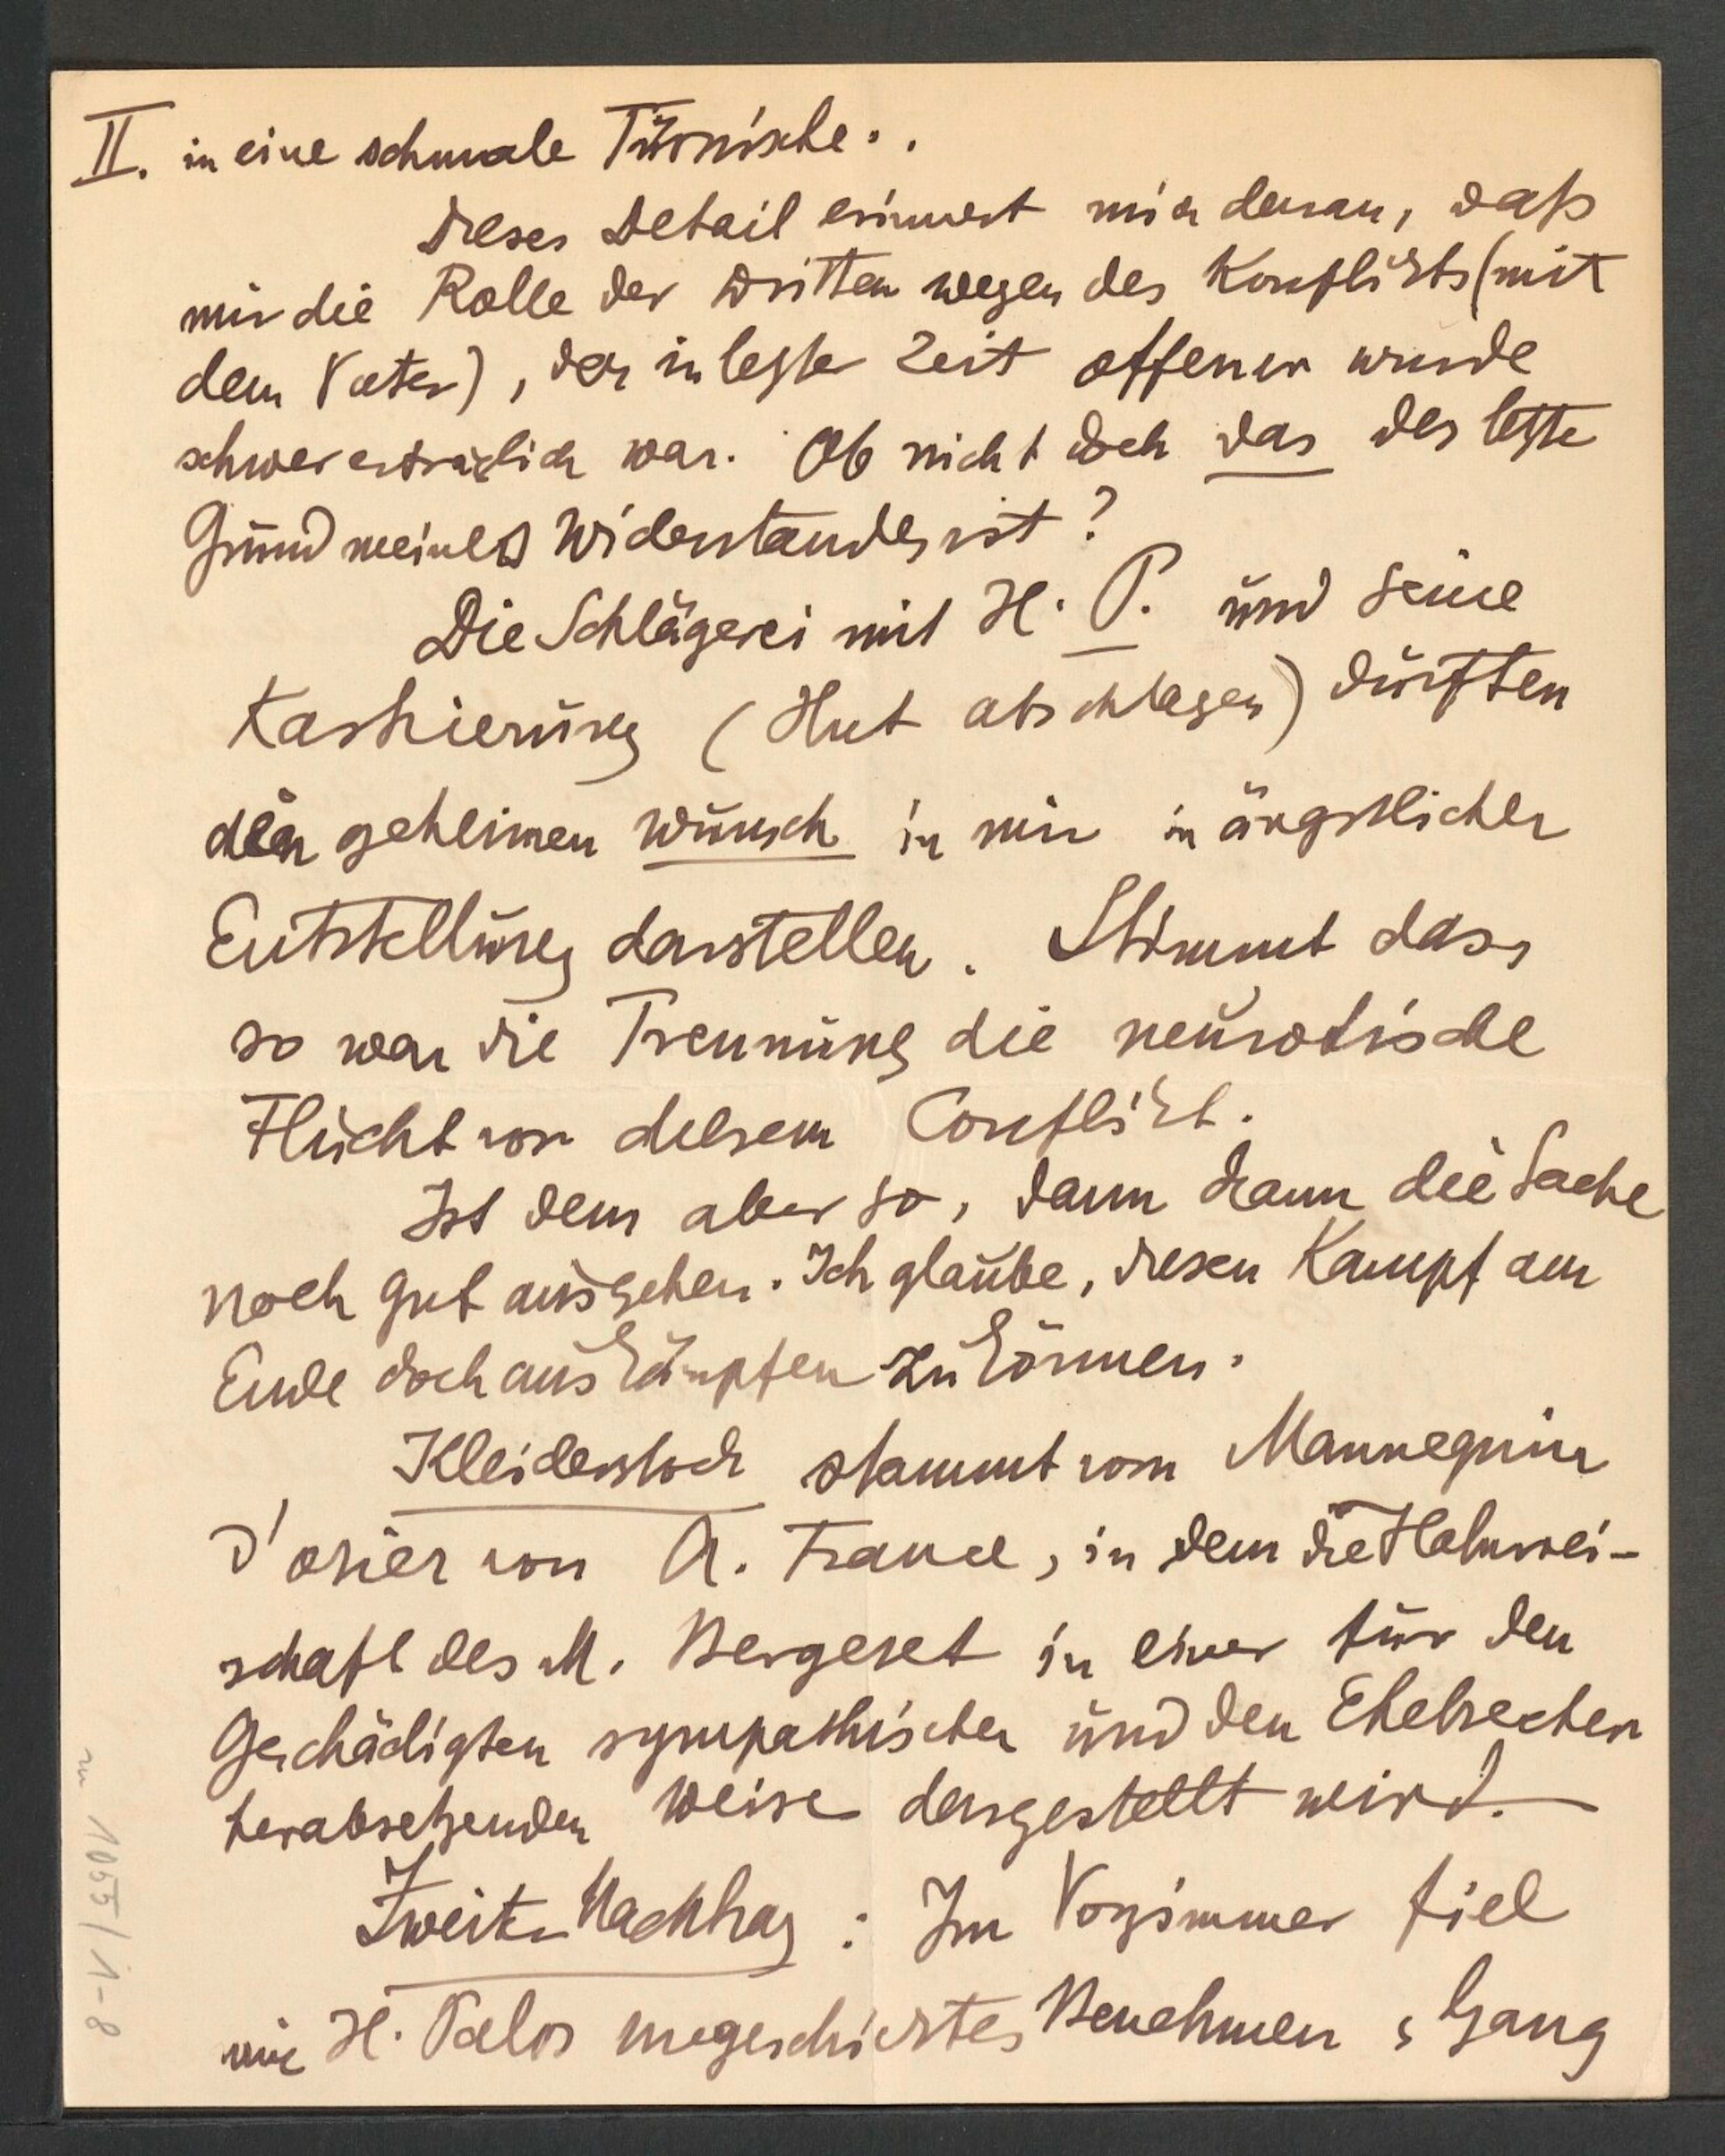 II. in eine schmale Türnische..
Dieses Detail erinnert mich daran, daß
mir die Rolle der dritten wegen des Konflikts (mit
dem Vater), der in letzter Zeit offener wurde
schwer erträglich war. Ob nicht doch das der letzte
Grund meines Widerstandes ist?
Die Schlägerei mit H. P. und seine
Kaschierung (Hut abschlagen) dürften
den geheimen Wunsch in mir in ängstlicher
Entstellung darstellen. Stimmt das,
so war die Trennung die neurotische
Flucht vor diesem Conflikt.
Ist dem aber so, dann kann die Sache
noch gut ausgehen. Ich glaube, diesen Kampf am
Ende doch auskämpfen zu können.
Kleiderstock stammt vom Mannequin
d'osier von A. France, in dem die Hahnrei-
schaft des M. Bergeret in einer für den
Geschädigten sympathischen und den Ehebrecher
herabsetzenden Weise dargestellt wird.
Zweiter Nachtrag: Im Vorzimmer fiel
mir H. Palos ungeschicktes Benehmen, Gang
1055/1-8